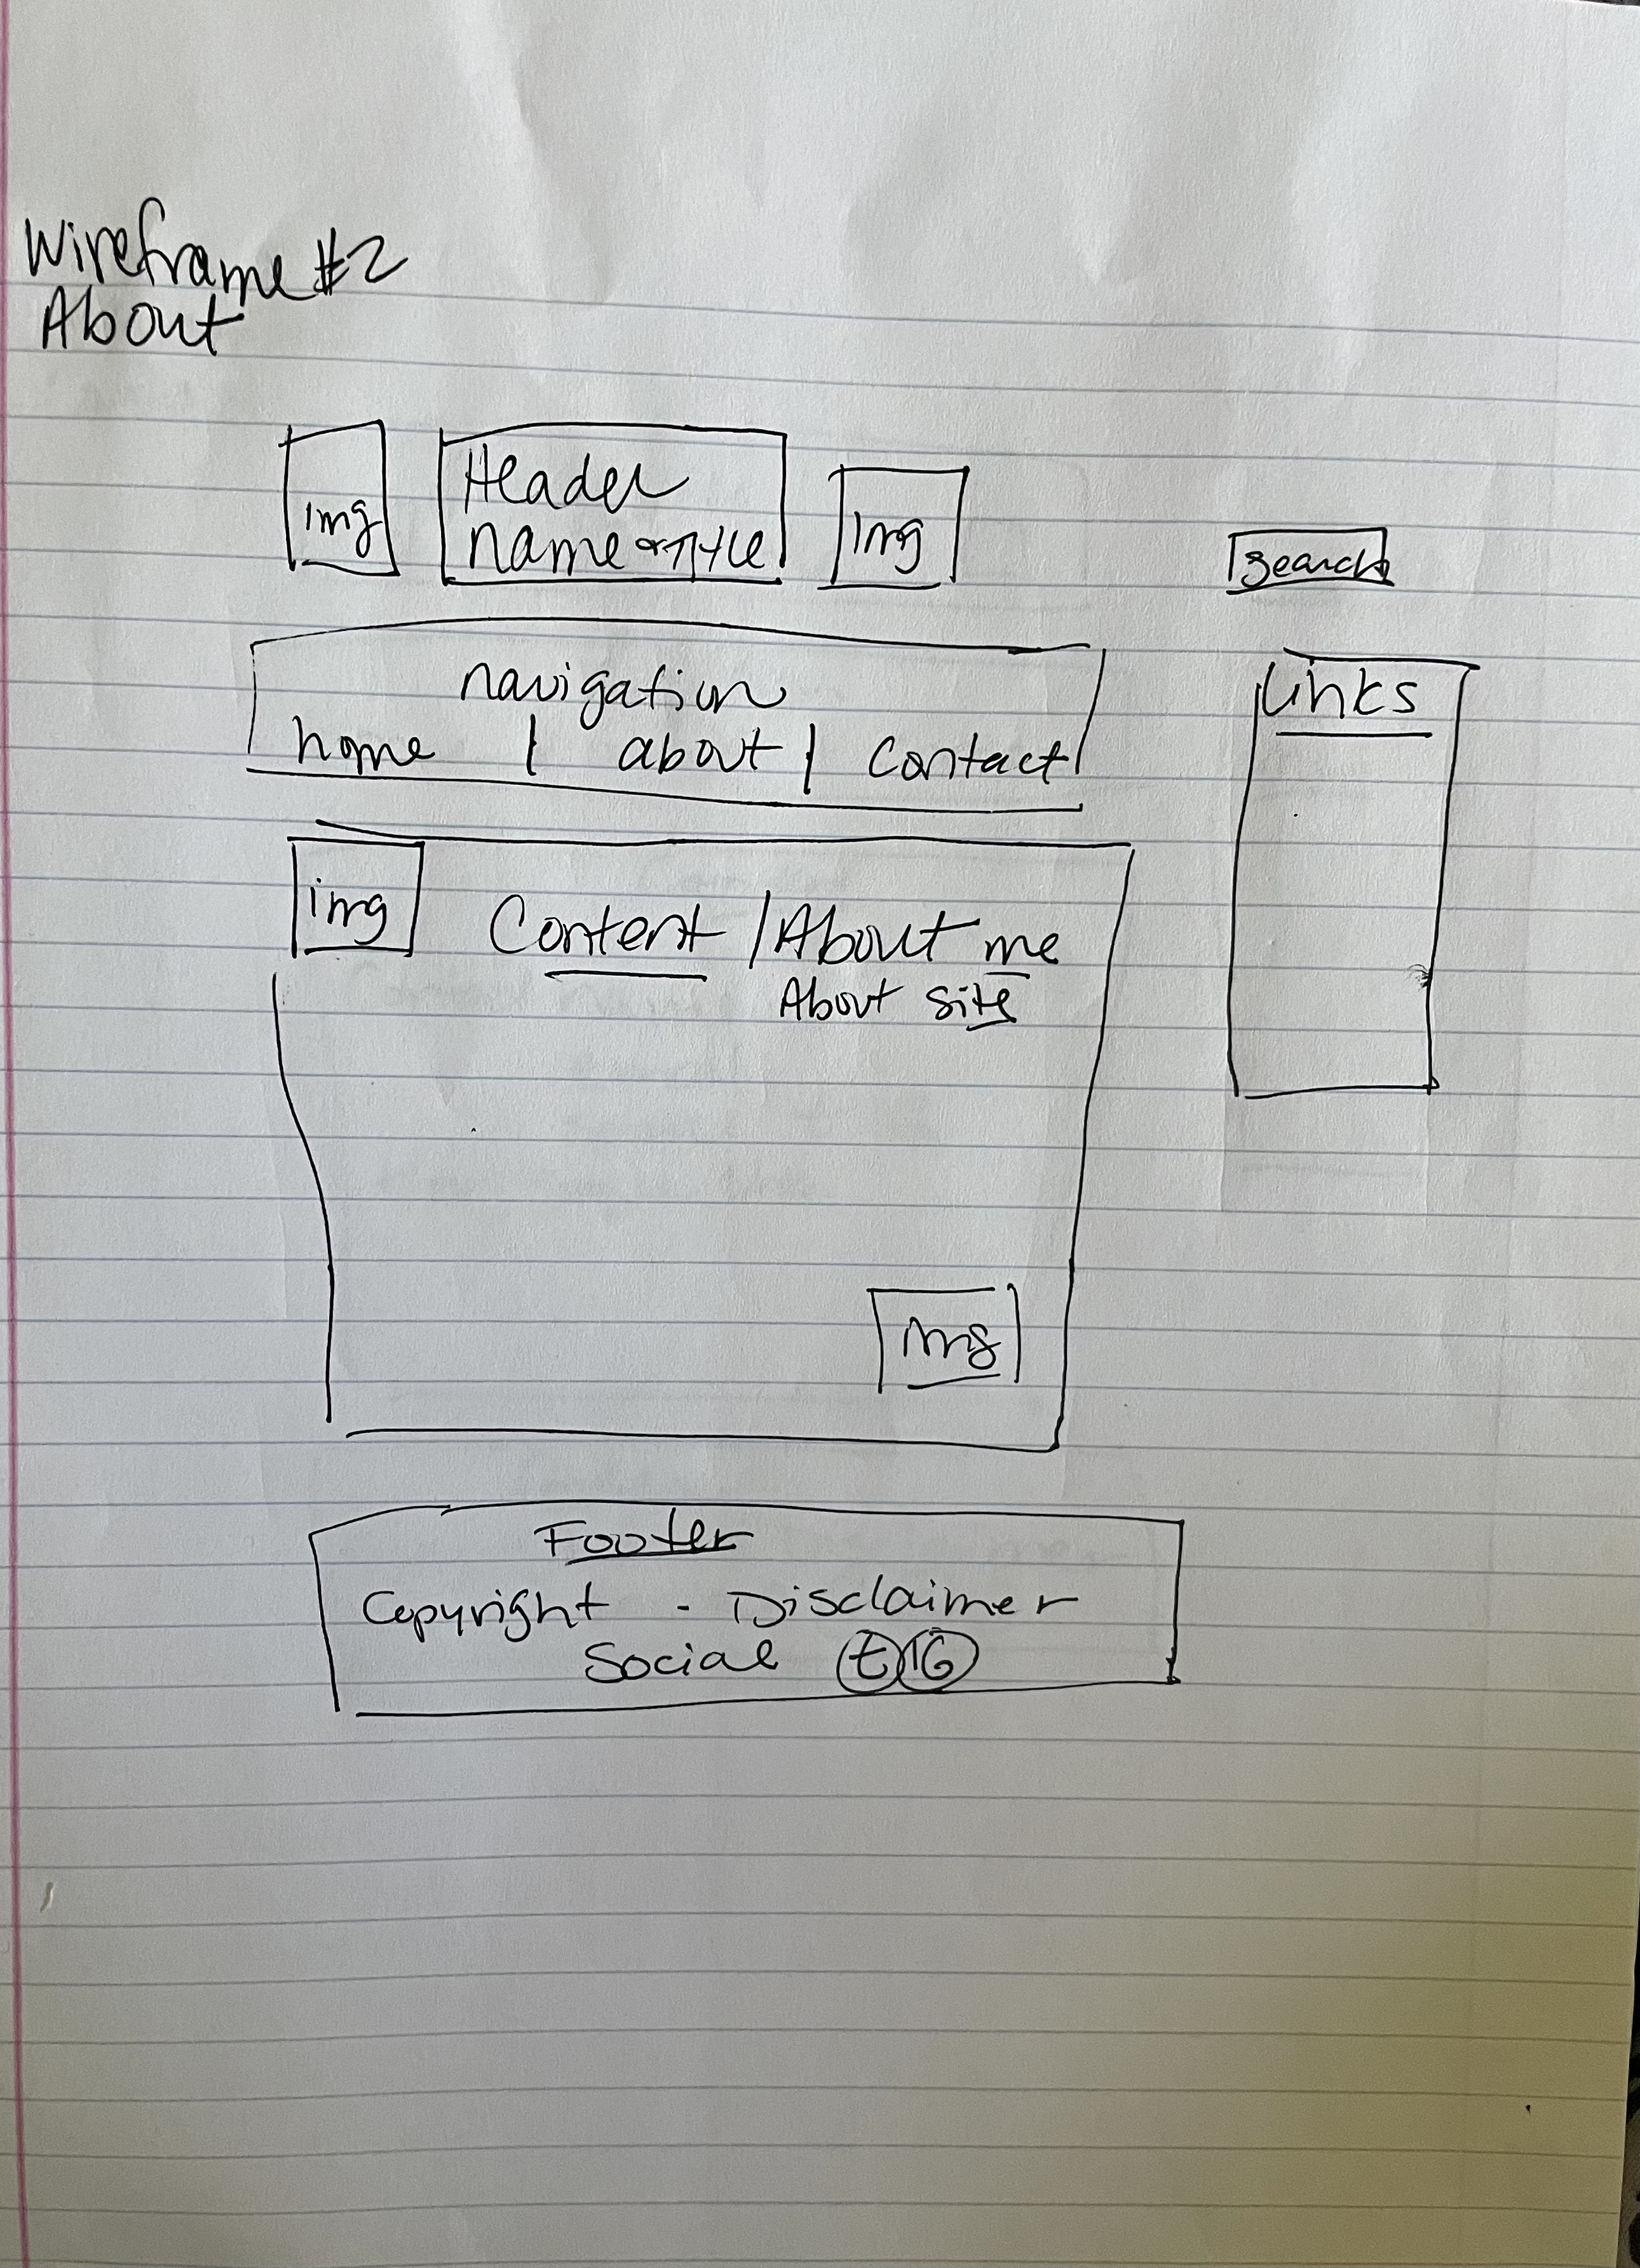 Wireframe #2
About
img
Header
name or Title
img
Search
navigation
home | about | Contact
Links
img
Content / About me
About site
img
Footer
Copyright - Disclaimer
Social t IG